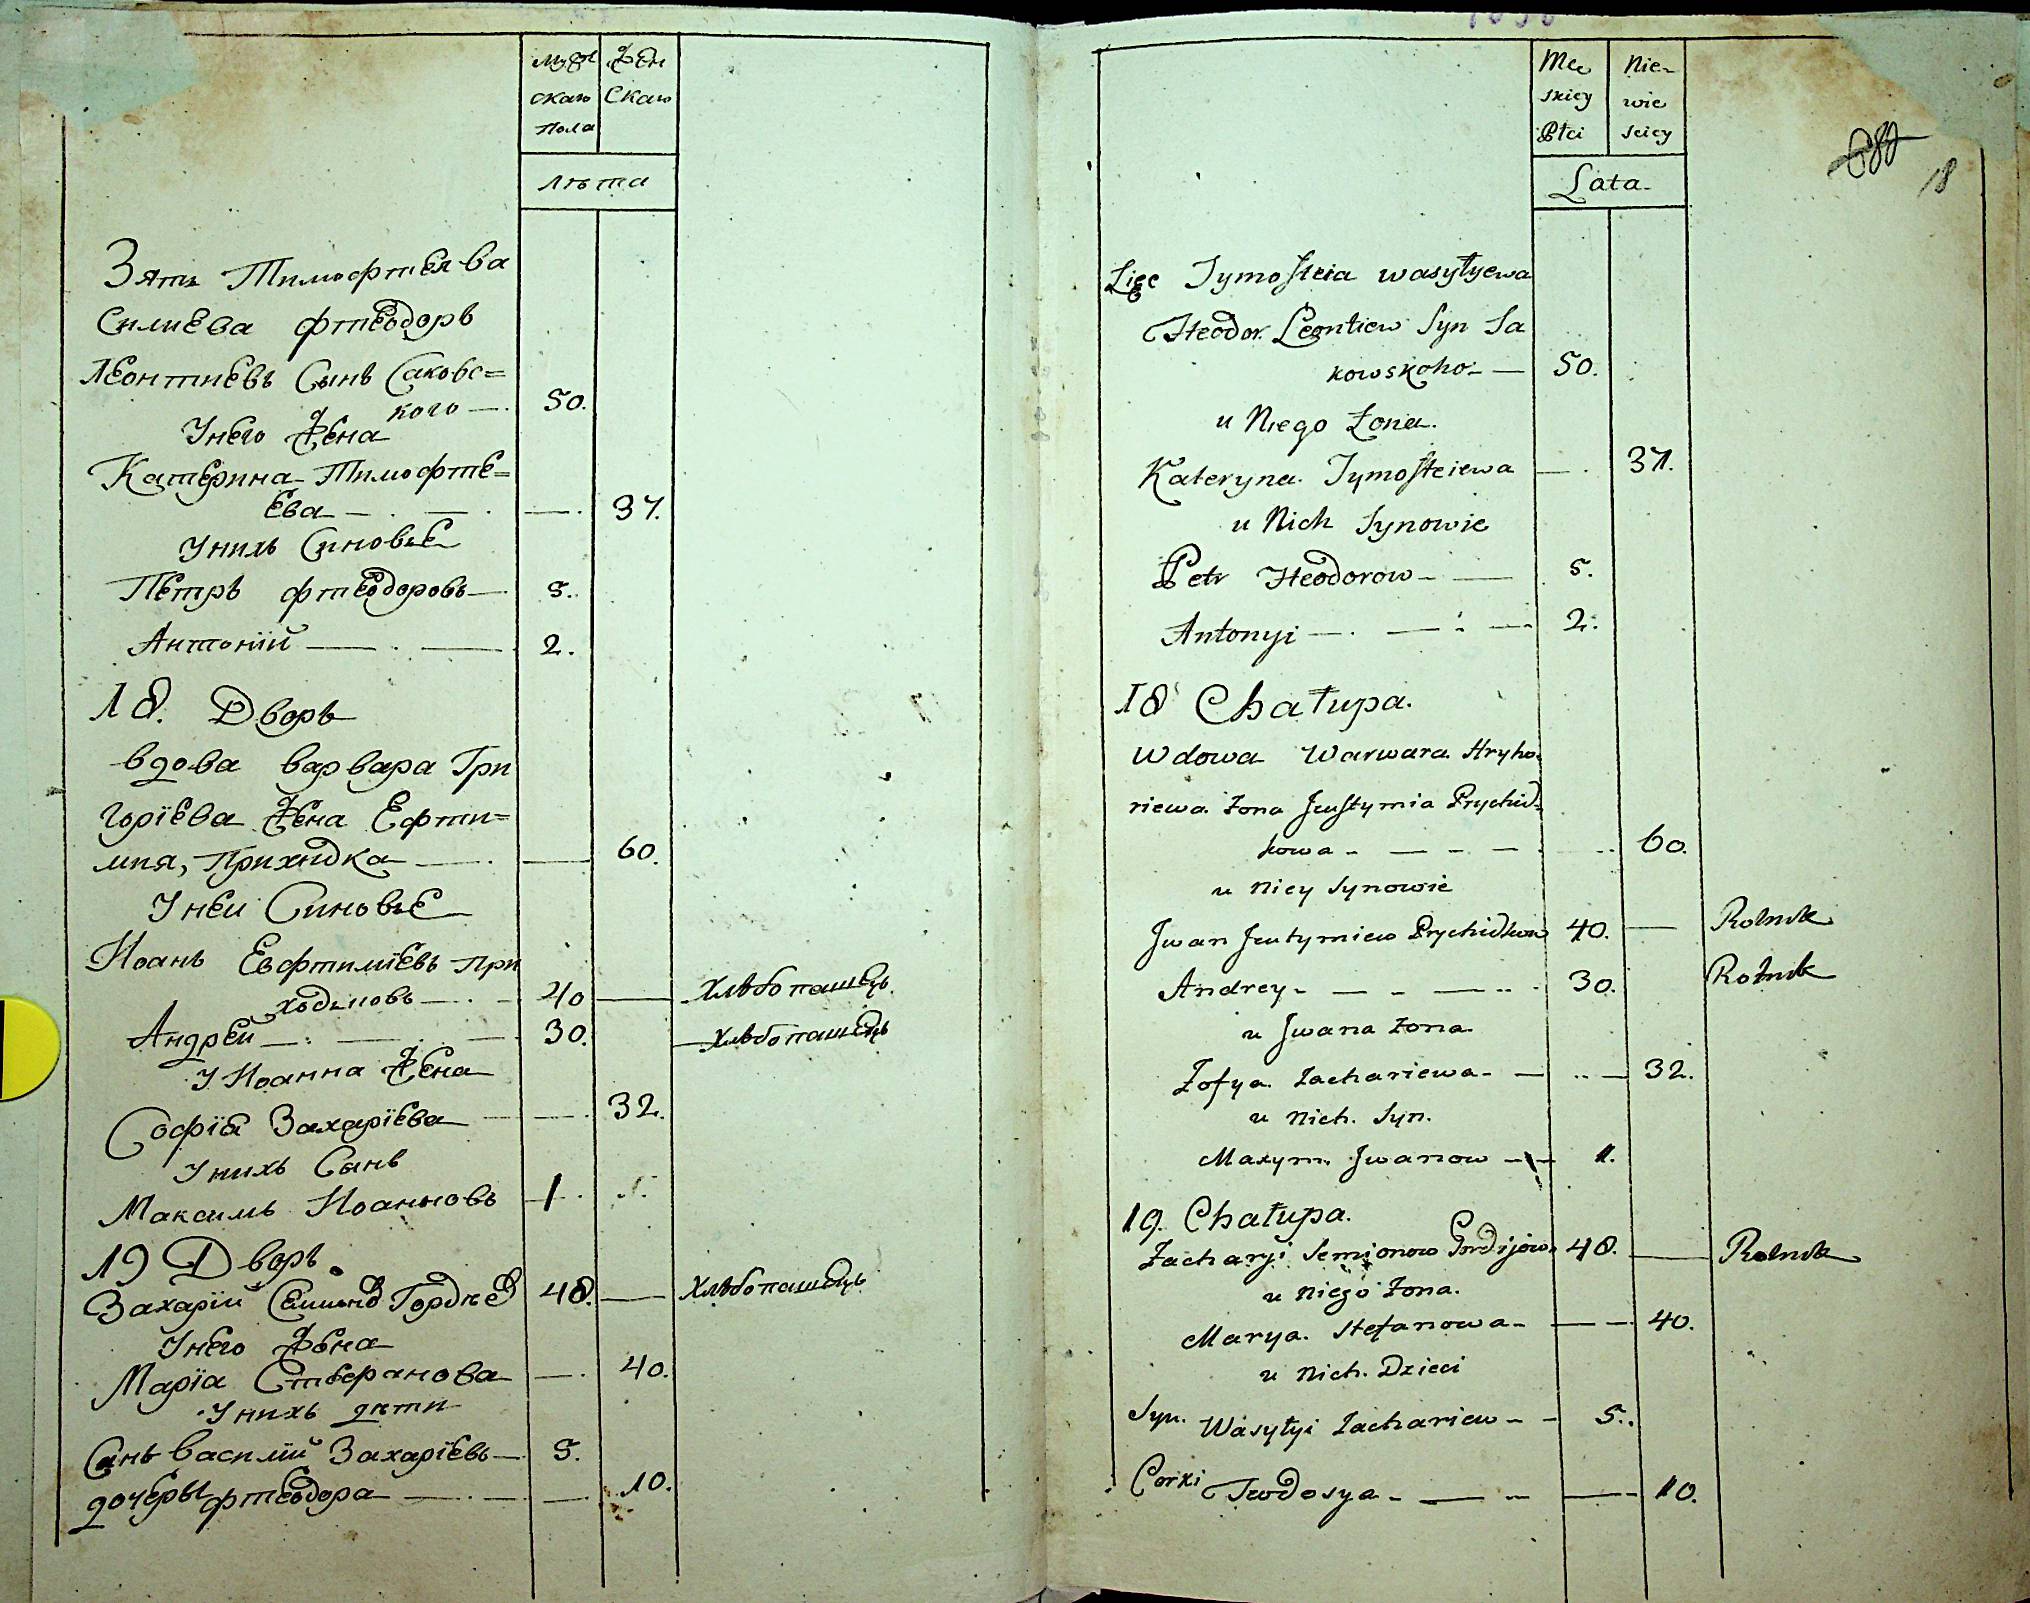 муже
ского
пола
Жен
ского
лѣта
Зять Тимофтея Ва
силиева Фтеодоръ
Леонтиевъ Сынъ Саковс=
кого — 50.
Унего Жена
Катерина Тимофте=
ева — — 37.
Унихъ Синовьѣ
Петръ Фтеодоровъ — 5.
Антоній — — 2.
18. Дворъ
вдова варвара Гри
горіева Жена Ефти=
мия, Прихидка — — 60.
Унеи Синовьѣ
Иоанъ Евфтиміевъ При
ходьковъ — 40 — Хлѣбопашецъ
Андрей — — 30. — Хлѣбопашецъ
У Иоанна Жена
Софія Захаріева — — 32.
Унихъ Сынъ
Максимъ Иоанновъ 1.
19 Дворъ
Захарій Семионов Гордѣев 48. — Хлѣбопашецъ
Унего Жена
Марія Стеефанова — 40.
Унихъ дѣти
Сынъ Василій Захаріевъ — 5.
дочеры Фтеодора — — 10.
Mę
skiey
Płci
Nie-
wie
sciey
Lata
18
Zięc Tymofteia Wasyłyewa
Fteodor Leontiew Syn Sa
kowskoho — 50.
u Niego Zona.
Kateryna Tymofteiewa — 37.
u Nich Synowie
Petr Fteodorow — — 5.
Antonyi — — — 2.
18 Chałupa.
Wdowa Warwara Hryho-
riewa Zona Jeuftymia Prychid-
kowa — — — 60.
u Niey Synowie
Jwan Jeutymiew Prychidkow 40. — Rolnik
Andrey — — — 30. Rolnik
u Jwana Zona
Zofya Zachariewa — — 32.
u Nich. Syn.
Maxym Jwanow — 1.
19. Chałupa.
Zacharyi Semionow Gordijow 48. — Rolnik
u Niego Zona.
Marya Stefanowa — — 40.
u Nich. Dzieci
Syn. Wasyłyi Zachariew — 5.
Corki Teodosya — — — 10.